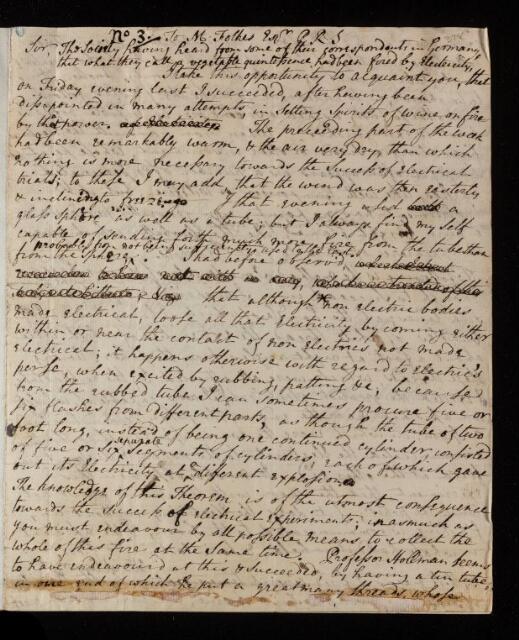 No. 3. To M. Folkes Esqr. P R S
Sir, The Society having heard from some of their correspondents in Germany,
that what they call a vegetable quintessence had been fired by Electricity,
I take this opportunity to acquaint you, that
on Friday evening last I succeeded, after having been
disappointed in many attempts, in setting spirits of wine on fire
by that power. The preceeding part of the week
had been remarkably warm, & the air very dry, than which
nothing is more necessary towards the success of electrical
trials; to these I may add, that the wind was then easterly
& inclining to freeze. That evening I used a
glass sphere as well as a tube; but I always find my self
capable of sending forth much more fire from the tube than
from the sphere, probably from not being sufficiently used to the last.
I had before observ'd
that although non electric bodies
made electrical, loose all that Electricity by coming either
within or near the contact of non electrics not made
electrical; it happens otherwise with regard to electrics
per se, when excited by rubbing, patting &c, because
from the rubbed tube I can sometimes procure five or
six flashes from different parts, as though the tube of two
foot long, instead of being one continued cylinder, consisted
of five or six separate segments of cylinders each of which gave
out its Electricity at a different explosion.
The knowledge of this Theorem is of the utmost consequence
towards the success of electrical experiments; inasmuch as
you must endeavour by all possible means to collect the
whole of this fire at the same time. Professor Hollman seems
to have endeavour'd at this & succeeded, by having a tin tube,
in one end of which he put a great many threads, whose